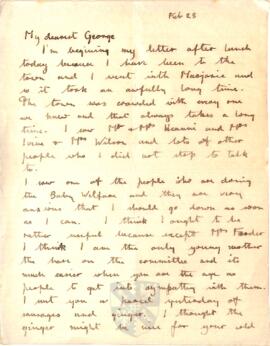 Feb 23
My dearest George
I'm begining my letter after lunch
today because I have been to the
town and I went with Marjorie and
so it took an awfully long time.
The town was crowded with every one
we knew and that always takes a long
time. I saw Mr & Mrs and Mrs
& Mrs Wilson and lots of other
people who I did not stop to talk
to.
I saw one of the people who are doing
the Baby Welfare and they are very
anxious that I should go down as soon
as I can. I think I ought to be
rather useful because except Mrs
I think I am the only young mother
the have on the committee and its
much easier when you are the age as
people to get into sympathy with them.
I sent you a parcel yesterday of
sausages and ginger. I thought the
ginger might be nice for your cold